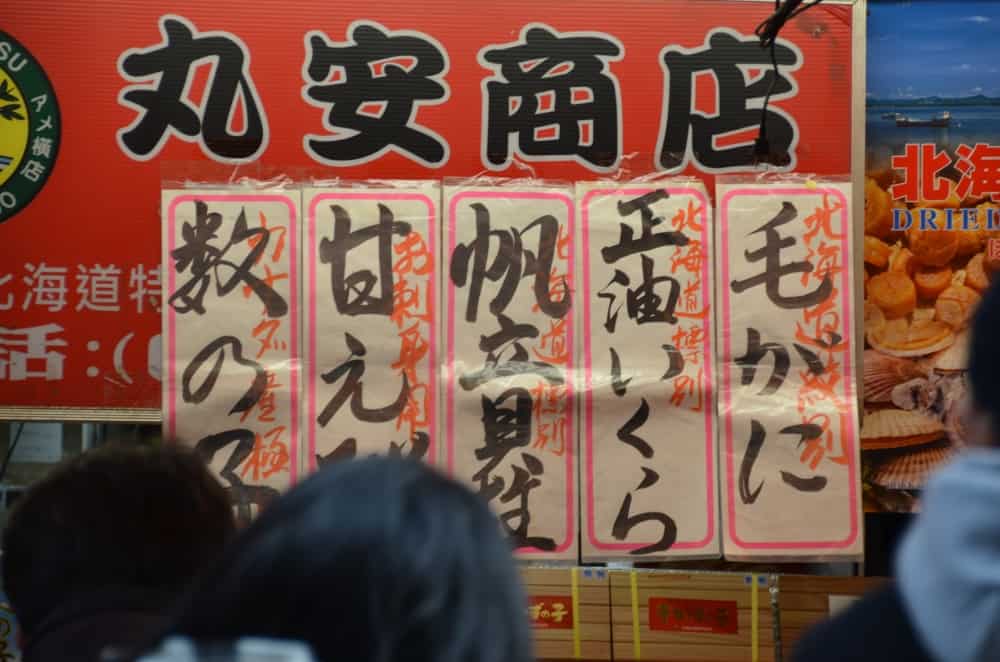 丸安商店
SU
アメ横店
北海
DRIE
北海道特
話:(
毛がに
北海道特別
正油いくら
北海道特別
帆立貝
北海道特別
甘え
お刺身用
数の子
カナダ産極
ずの子